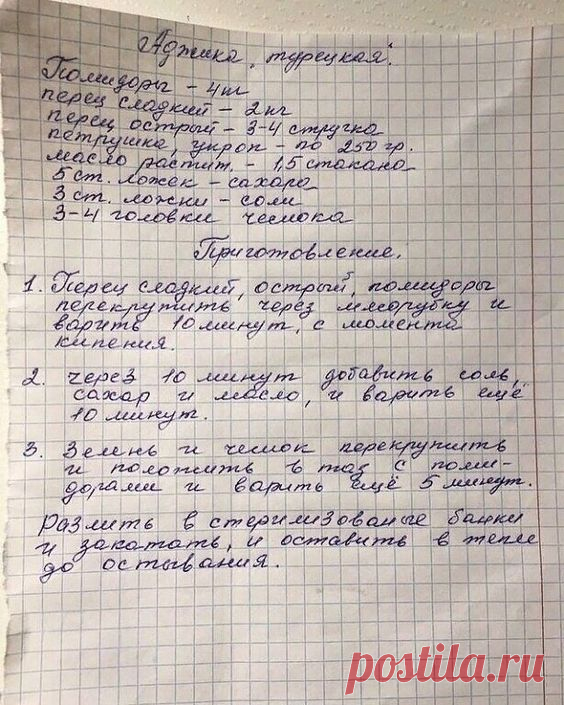 "Аджика турецкая".
Помидоры - 4кг
перец сладкий - 2кг
перец острый - 3-4 стручка
петрушка, укроп - по 250 гр.
масло растит. - 1,5 стакана
5 ст. ложек - сахара
3 ст. ложки - соли
3-4 головки чеснока
Приготовление.
1. Перец сладкий, острый, помидоры
перекрутить через мясорубку и
варить 10 минут, с момента
кипения.
2. через 10 минут добавить соль,
сахар и масло, и варить ещё
10 минут.
3. Зелень и чеснок перекрутить
и положить в таз с поми-
дорами и варить ещё 5 минут.
Разлить в стерилизованые банки
и закатать, и оставить в тепле
до остывания.
postila.ru